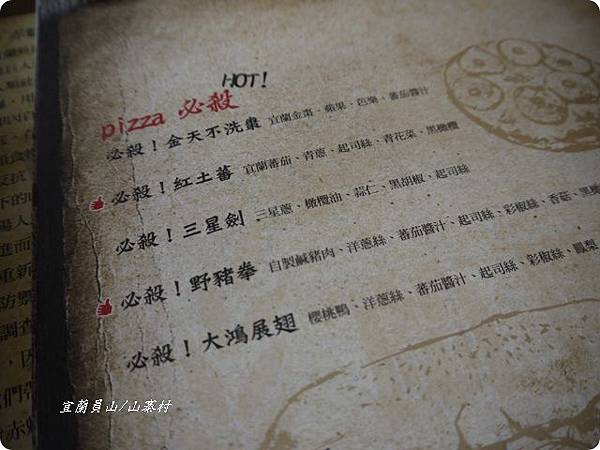 HOT!
pizza 必殺
必殺！金天不洗棗 宜蘭金棗、蘋果、芭樂、蕃茄醬汁
必殺！紅土蕃 宜蘭蕃茄、青蔥、起司絲、青花菜、黑橄欖
必殺！三星劍 三星蔥、橄欖油、蒜仁、黑胡椒、起司絲
必殺！野豬拳 自製鹹豬肉、洋蔥絲、蕃茄醬汁、起司絲、彩椒絲、香菇、黑橄
必殺！大鴻展翅 櫻桃鴨、洋蔥絲、蕃茄醬汁、起司絲、彩椒絲、鳳梨
宜蘭員山/山寨村